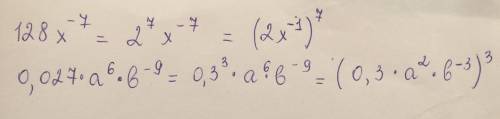 128x⁻⁷ = 2⁷x⁻⁷ = (2x⁻¹)⁷
0,027·a⁶·b⁻⁹ = 0,3³·a⁶·b⁻⁹ = (0,3·a²·b⁻³)³